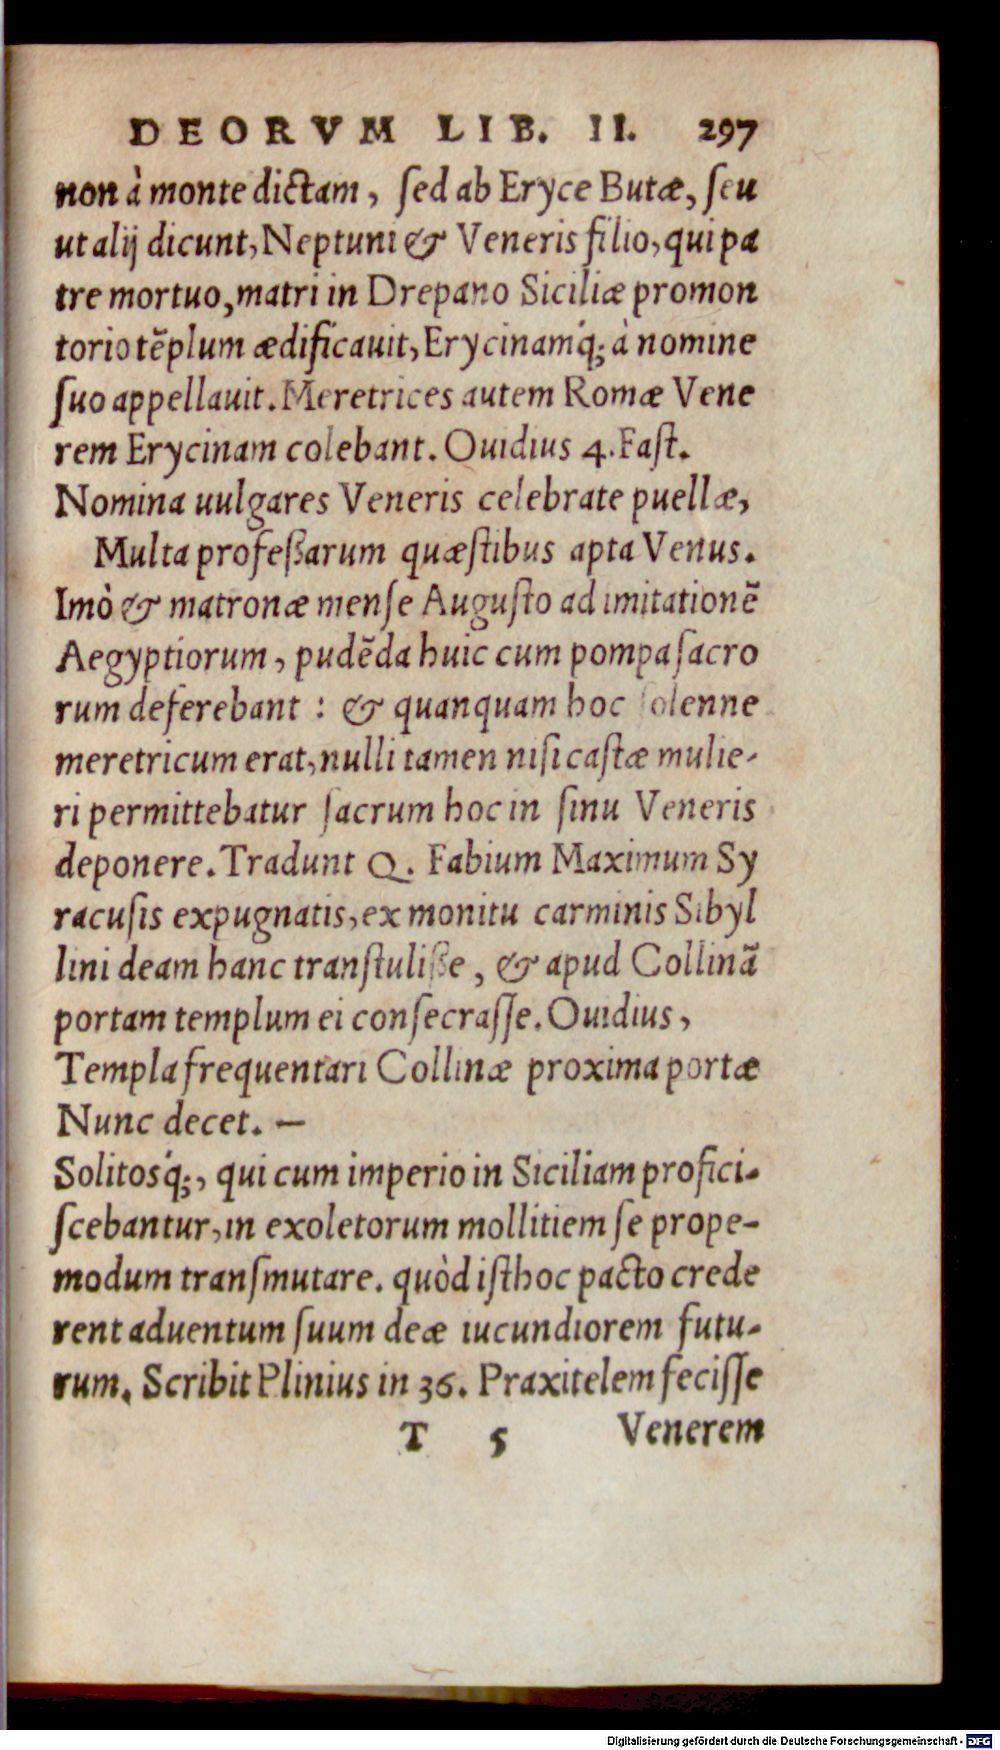 DEORVM LIB. II. 297
non à monte dictam, ſed ab Eryce Butæ, ſeu
ut alij dicunt, Neptuni & Veneris filio, qui pa
tre mortuo, matri in Drepano Siciliæ promon
torio tẽplum ædificauit, Erycinamq́; à nomine
ſuo appellauit. Meretrices autem Romæ Vene
rem Erycinam colebant. Ouidius 4. Faſt.
Nomina uulgares Veneris celebrate puellæ,
Multa profeßarum quæſtibus apta Venus.
Imò & matronæ menſe Auguſto ad imitationẽ
Aegyptiorum, pudẽda huic cum pompa ſacro
rum deferebant : & quanquam hoc ſolenne
meretricum erat, nulli tamen niſi caſtæ mulie-
ri permittebatur ſacrum hoc in ſinu Veneris
deponere. Tradunt Q. Fabium Maximum Sy
racuſis expugnatis, ex monitu carminis Sibyl
lini deam hanc tranſtuliße, & apud Collinã
portam templum ei conſecraſſe. Ouidius,
Templa frequentari Collinæ proxima portæ
Nunc decet. —
Solitosq́;, qui cum imperio in Siciliam profici-
ſcebantur, in exoletorum mollitiem ſe prope-
modum tranſmutare. quòd iſthoc pacto crede
rent aduentum ſuum deæ iucundiorem futu-
rum. Scribit Plinius in 36. Praxitelem feciſſe
T 5 Venerem
Digitalisierung gefördert durch die Deutsche Forschungsgemeinschaft - DFG